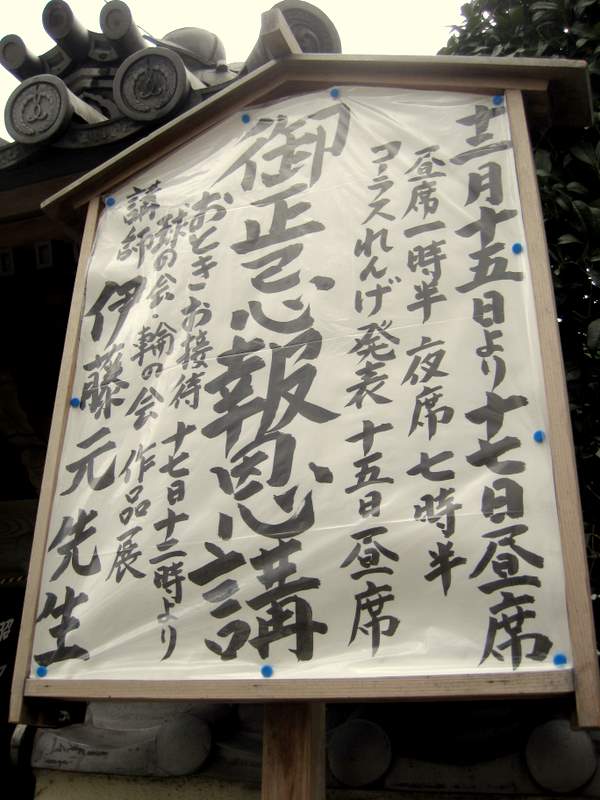 十二月十五日より十七日昼席
昼席一時半 夜席七時半
コーラスれんげ発表 十五日昼席
御正忌報恩講
おときお接待 十七日十二時より
の会・輪の会 作品展
講師 伊藤元先生